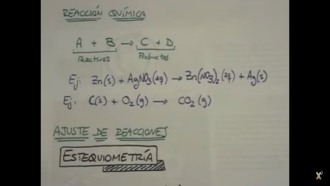 REACCIÓN QUÍMICA
A + B → C + D
Reactivos Productos
Ej: Zn(s) + AgNO3(aq) → Zn(NO3)2(aq) + Ag(s)
Ej: C(s) + O2(g) → CO2(g)
AJUSTE DE REACCIONES
ESTEQUIOMETRÍA